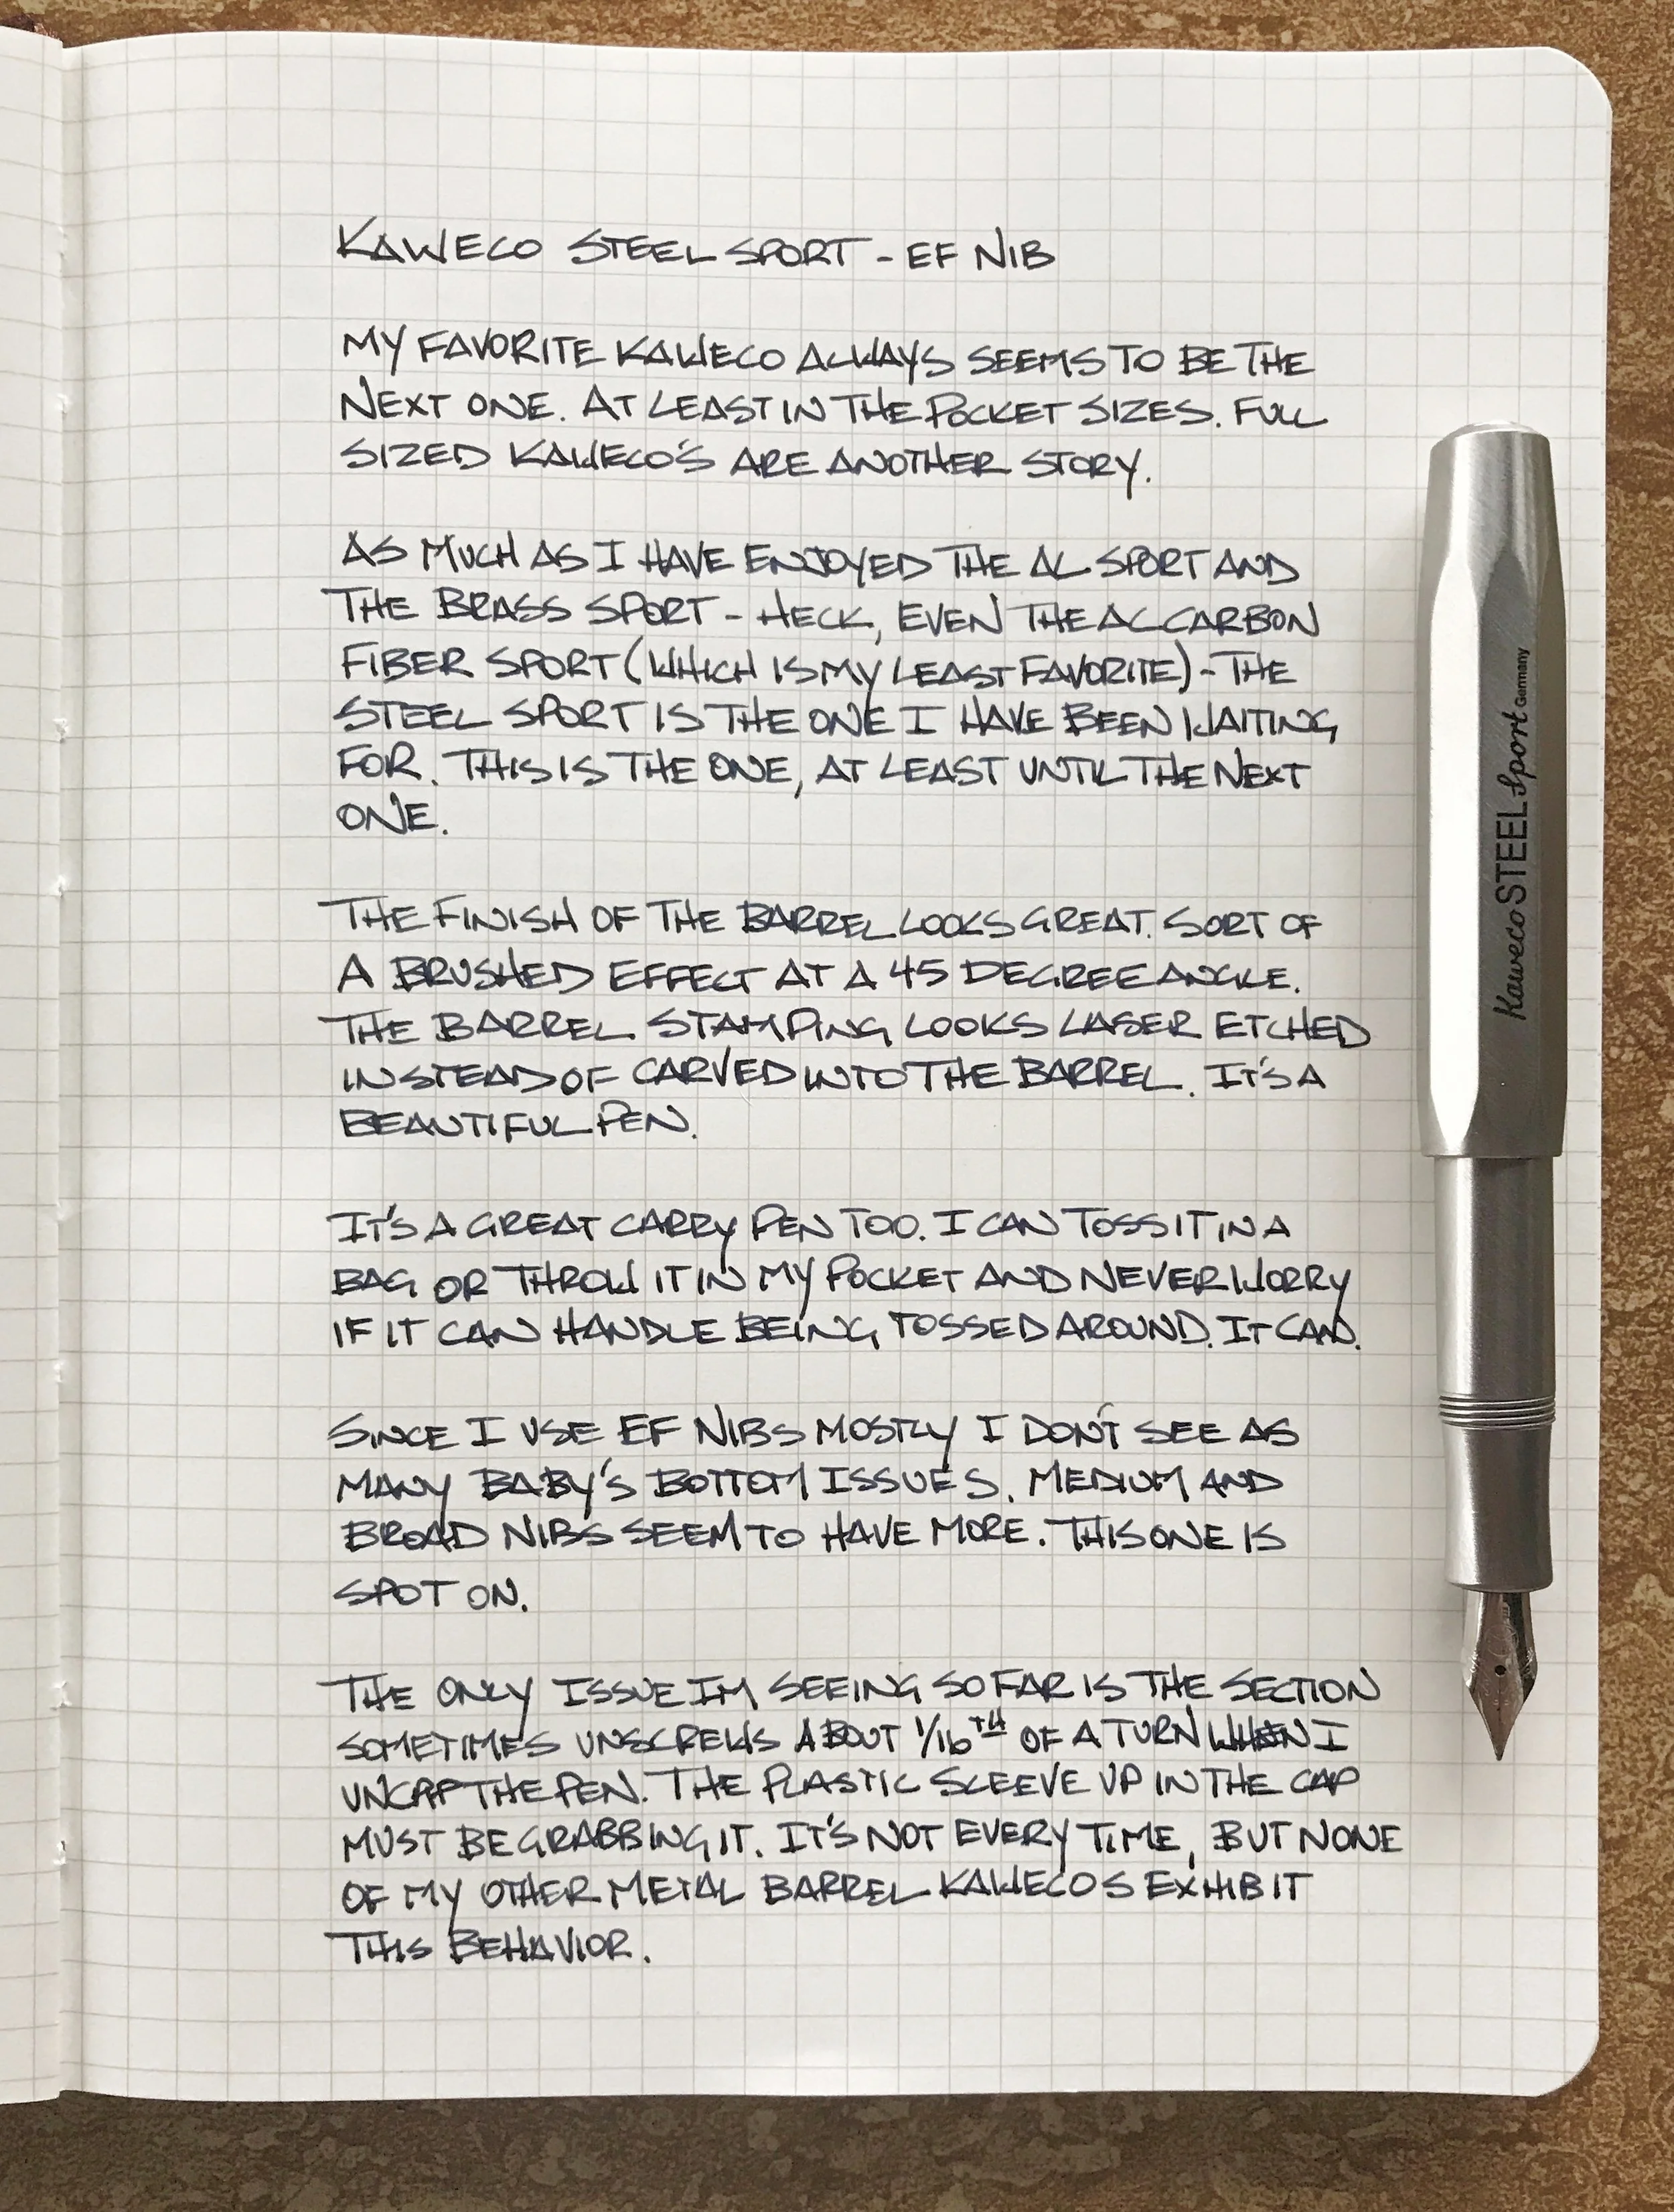 KAWECO STEEL SPORT - EF NIB
MY FAVORITE KAWECO ALWAYS SEEMS TO BE THE
NEXT ONE. AT LEAST IN THE POCKET SIZES. FULL
SIZED KAWECO'S ARE ANOTHER STORY.
AS MUCH AS I HAVE ENJOYED THE AL SPORT AND
THE BRASS SPORT - HECK, EVEN THE AC CARBON
FIBER SPORT (WHICH IS MY LEAST FAVORITE) - THE
STEEL SPORT IS THE ONE I HAVE BEEN WAITING
FOR. THIS IS THE ONE, AT LEAST UNTIL THE NEXT
ONE.
THE FINISH OF THE BARREL LOOKS GREAT. SORT OF
A BRUSHED EFFECT AT A 45 DEGREE ANGLE.
THE BARREL STAMPING LOOKS LASER ETCHED
INSTEAD OF CARVED INTO THE BARREL. IT'S A
BEAUTIFUL PEN.
IT'S A GREAT CARRY PEN TOO. I CAN TOSS IT IN A
BAG OR THROW IT IN MY POCKET AND NEVER WORRY
IF IT CAN HANDLE BEING TOSSED AROUND. IT CAN.
SINCE I USE EF NIBS MOSTLY I DON'T SEE AS
MANY BABY'S BOTTOM ISSUES. MEDIUM AND
BROAD NIBS SEEM TO HAVE MORE. THIS ONE IS
SPOT ON.
THE ONLY ISSUE IM SEEING SO FAR IS THE SECTION
SOMETIMES UNSCREWS ABOUT 1/16TH OF A TURN WHEN I
UNCAP THE PEN. THE PLASTIC SLEEVE UP IN THE CAP
MUST BE GRABBING IT. IT'S NOT EVERY TIME, BUT NONE
OF MY OTHER METAL BARREL KAWECOS EXHIBIT
THIS BEHAVIOR.
Kaweco STEEL Sport Germany